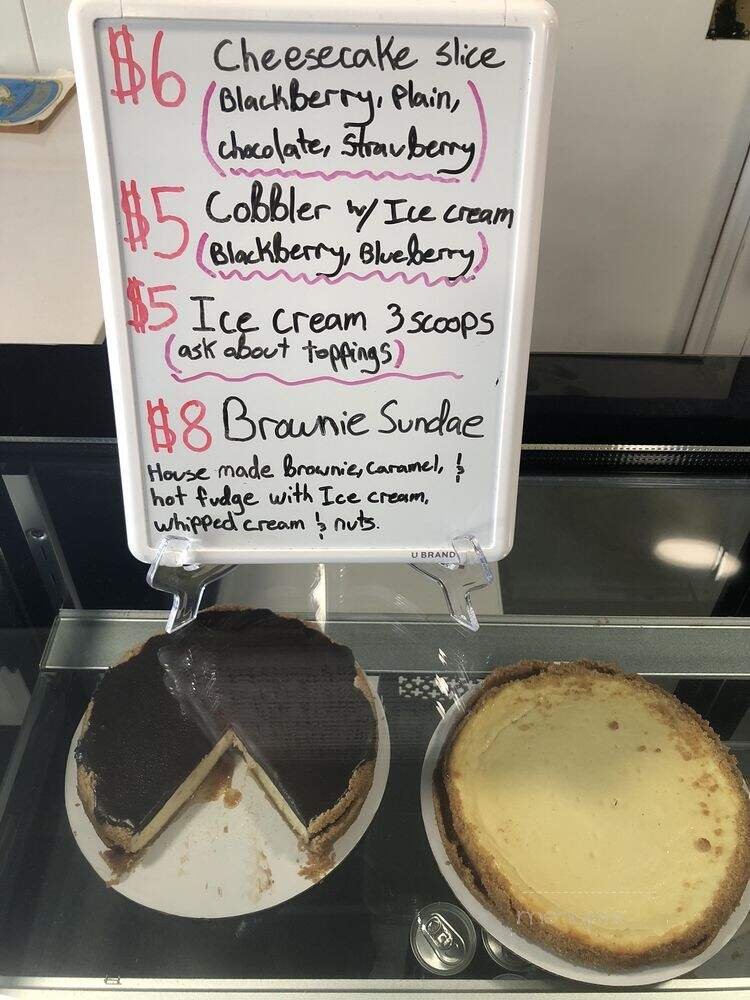 $6 Cheesecake slice
(Blackberry, Plain,
chocolate, Strawberry)
$5 Cobbler w/ Ice cream
(Blackberry, Blueberry)
$5 Ice cream 3 scoops
(ask about toppings)
$8 Brownie Sundae
House made Brownie, Caramel, &
hot fudge with Ice cream,
whipped cream & nuts.
U BRAND